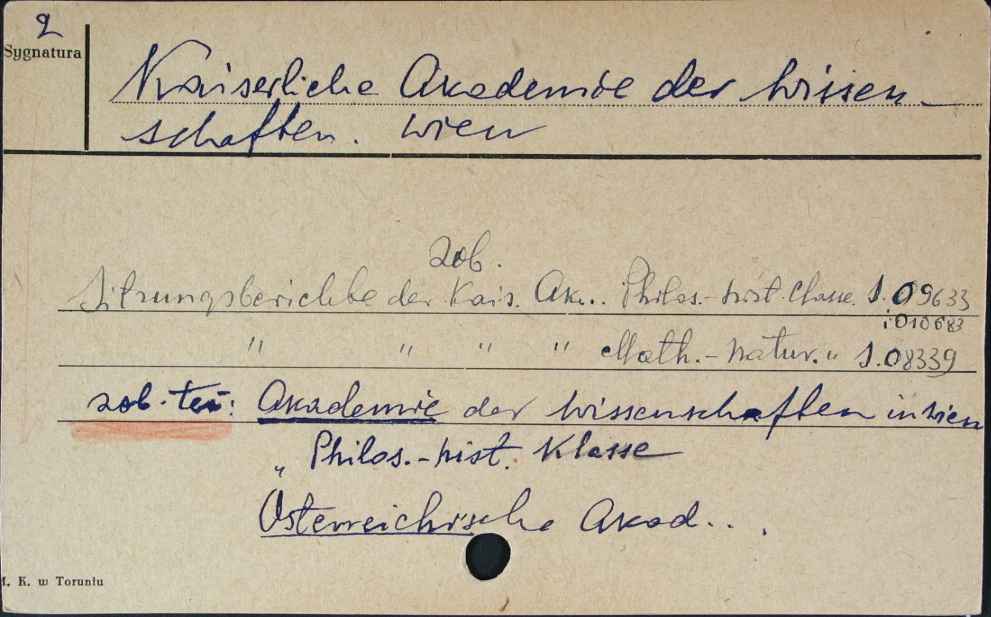 2
Sygnatura
Kaiserliche Akademie der Wissen-
schaften. Wien
zob.
Sitzungsberichte der Kais. Ak... Philos.-hist. Classe. S.09633
i 010683
" " " " Math.-natur. " S.08339
zob. też: Akademie der Wissenschaften in Wien
" Philos.-hist. Klasse
Österreichische Akad...
M. K. w Toruniu